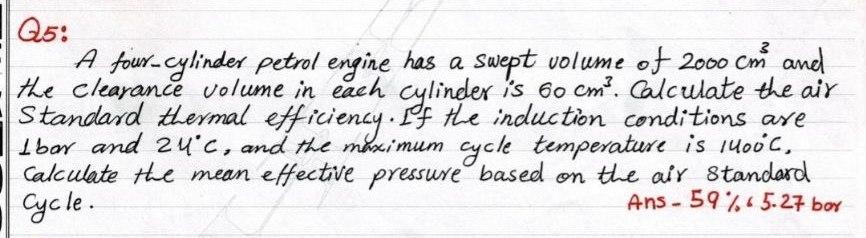 Q5:
A four-cylinder petrol engine has a swept volume of 2000 cm³ and
the clearance volume in each cylinder is 60 cm³. Calculate the air
Standard thermal efficiency. If the induction conditions are
1bar and 24°C, and the maximum cycle temperature is 1400°C,
Calculate the mean effective pressure based on the air Standard
Cycle.
Ans - 59% & 5.27 bar